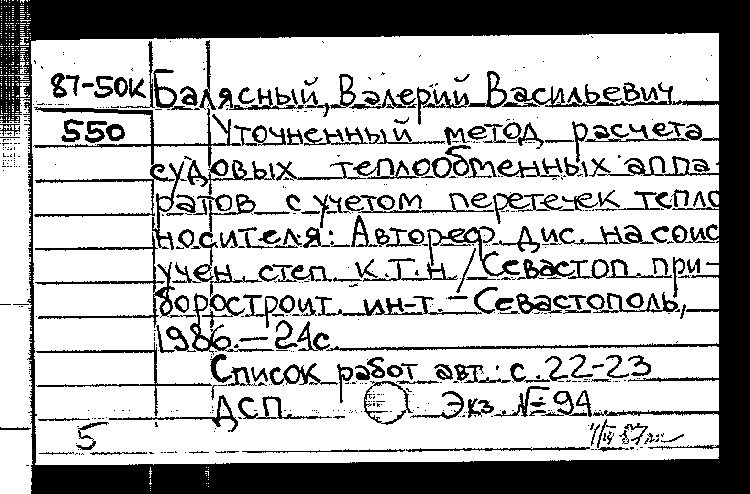 87-50К Балясный, Валерий Васильевич
550 Уточненный метод расчета
судовых теплообменных аппа-
ратов с учетом перетечек тепло
носителя: Автореф. дис. на соис
учен. степ. к.т.н. / Севастоп. при-
боростроит. ин-т. - Севастополь,
1986. - 24с.
Список работ авт.: с. 22-23
ДСП. Экз. № 94
5